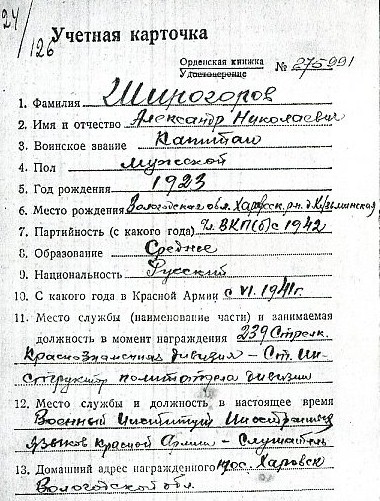 24/126
Учетная карточка
Орденская книжка
Удостоверение № 275991
1. Фамилия Широгоров
2. Имя и отчество Александр Николаевич
3. Воинское звание Капитан
4. Пол мужской
5. Год рождения 1923
6. Место рождения Вологодская обл. Харовск. рн. д. Кузьминская
7. Партийность (с какого года) Чл. ВКП(б) с 1942
8. Образование Среднее
9. Национальность Русский
10. С какого года в Красной Армии с VI. 1941г.
11. Место службы (наименование части) и занимаемая
должность в момент награждения 239 Стрелк.
Краснознаменная дивизия – Ст. ин-
структор политотдела дивизии
12. Место службы и должность в настоящее время
Военный Институт Иностранных
языков Красной Армии – Слушатель
13. Домашний адрес награжденного пос. Харовск
Вологодской обл.